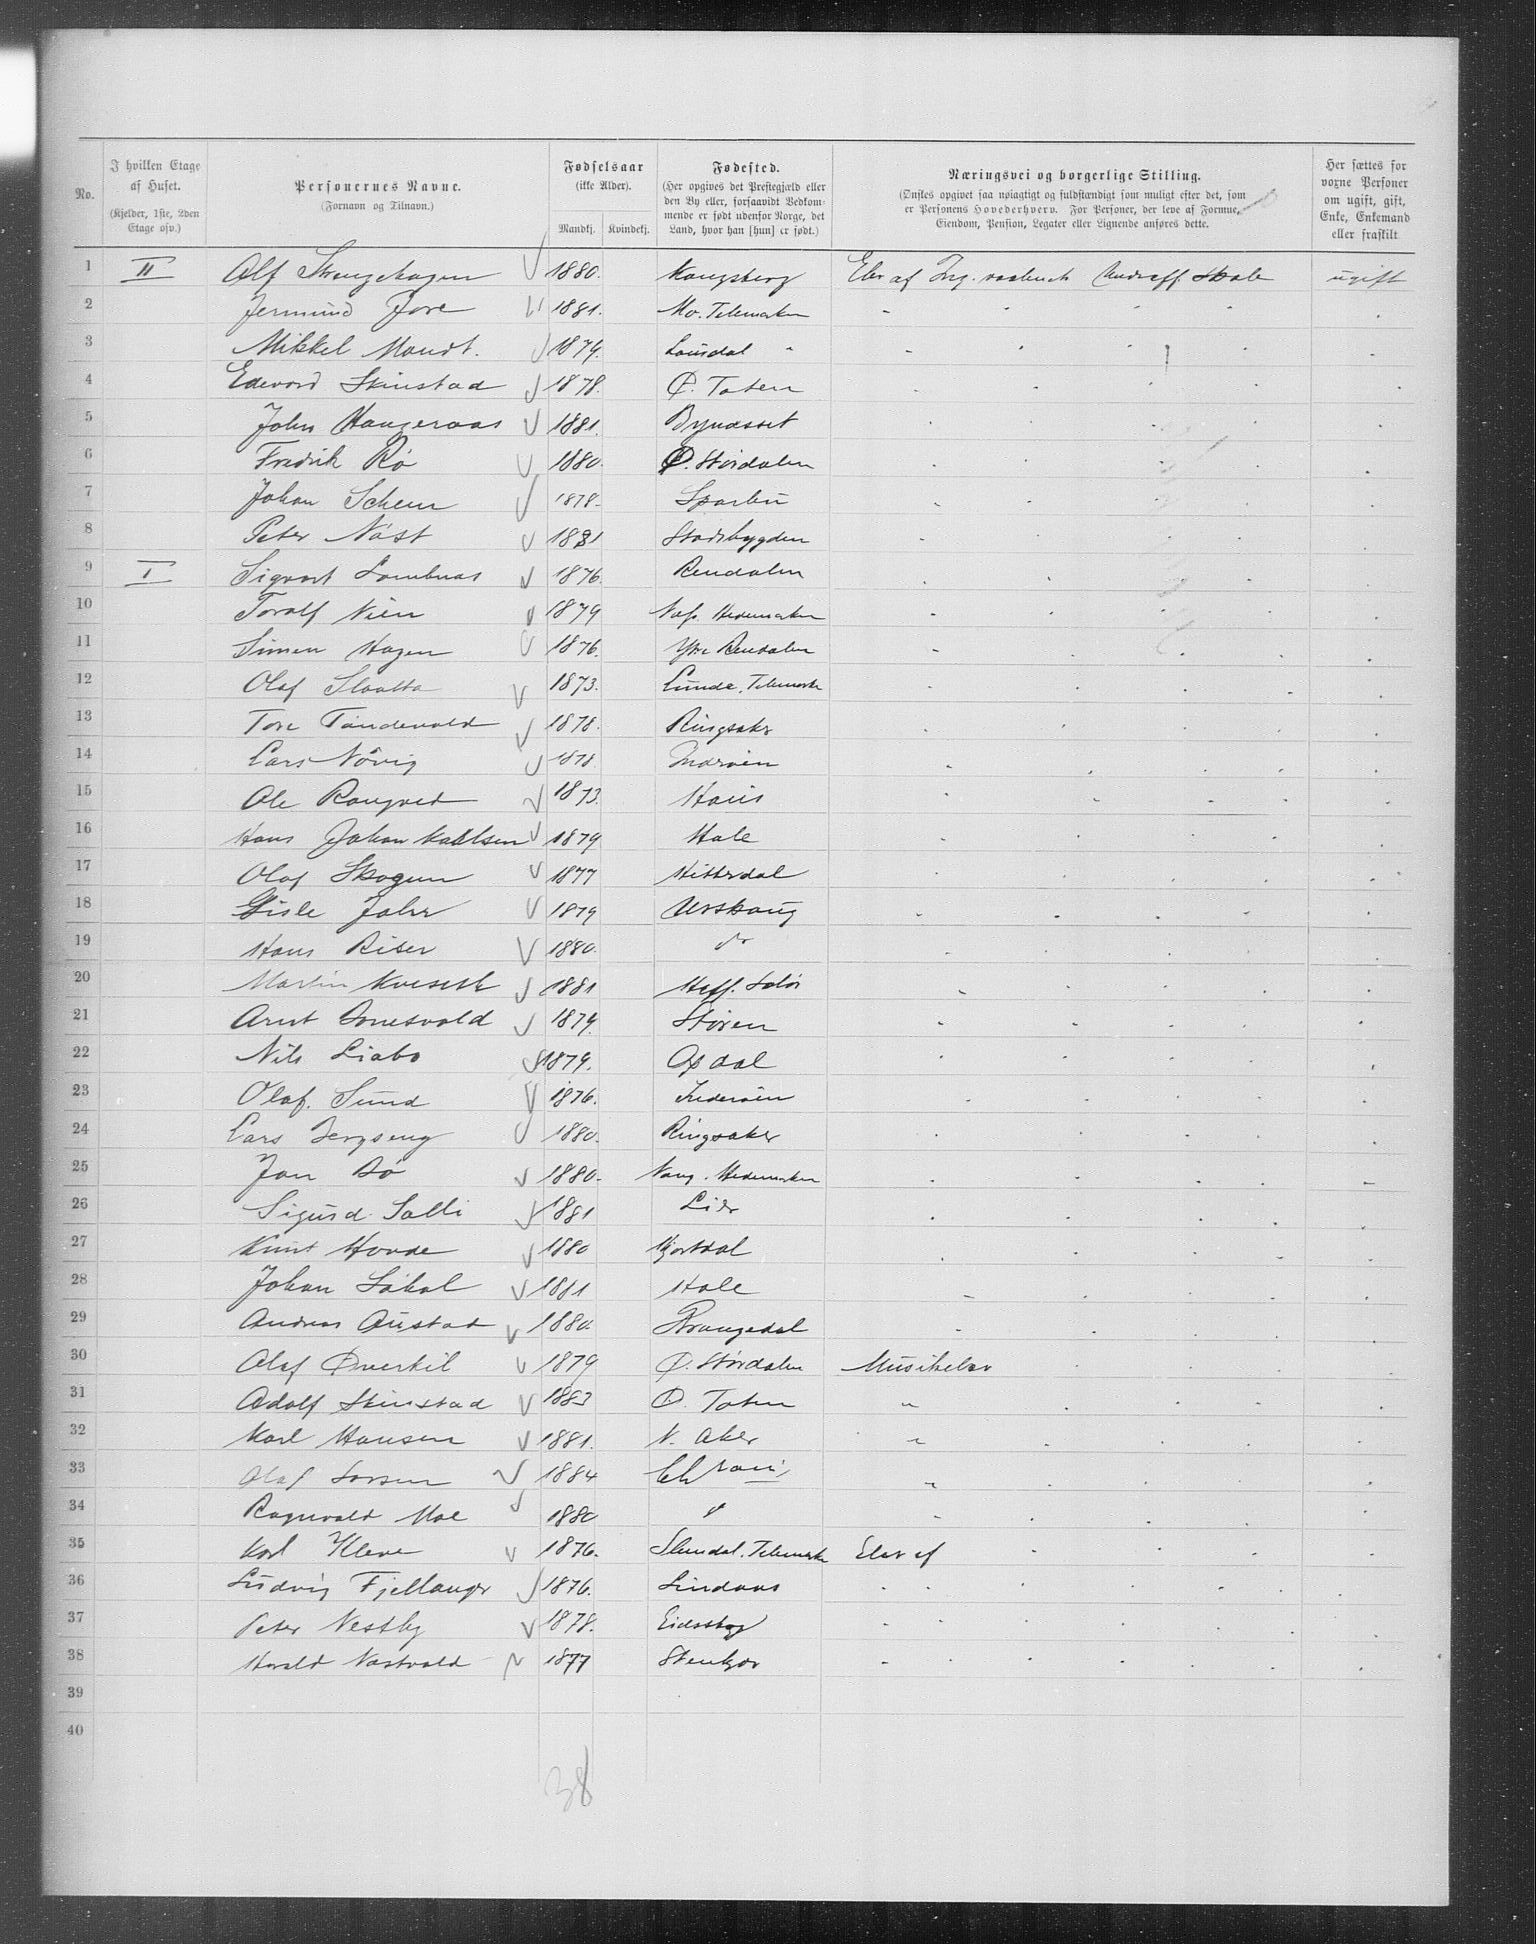 No.
I hvilken Etage af Huset.
(Kjelder, 1ste, 2den Etage osv.)
Personernes Navne.
(Fornavn og Tilnavn.)
Fødselsaar
(ikke Alder).
Mandkj. Kvindekj.
Fødested.
(Her opgives det Prestegjæld eller den By eller, forsaavidt Vedkommende er født udenfor Norge, det Land, hvor han [hun] er født.)
Næringsvei og borgerlige Stilling.
(Ønskes opgivet saa nøiagtigt og fuldstændigt som muligt efter det, som er Personens Hovederhverv. For Personer, der leve af Formue, Eiendom, Pension, Legater eller Lignende anføres dette.
Her sættes for voxne Personer om ugift, gift, Enke, Enkemand eller fraskilt
1 II Alf Strengehagen 1880. Kongsberg Elev af Ing. vaabnets Underoff. Skole ugift
2 Jermund Jore 1881. Mo. Telemarken
3 Mikkel Mandt. 1879. "
4 Edevard Skinstad 1878. Ø. Toten
5 John Haugeraas 1881. Bynæsset
6 Fredrik Rø 1880. Ø. Størdalen
7 Johan Schem 1878. Sparbu
8 Peter Næst 1881 Stadsbygden
9 I Sigvart Lombnæs 1876. Rendalen
10 Toralf Nien 1879 Næs. Hedemarken
11 Simen Hagen 1876. Ytre Rendalen
12 Olaf Slaatta 1873. Lunde, Telemark
13 Tore Tandevold 1878. Ringsaker
14 Lars Nøvig 1878 Inderøen
15 Ole Raugved 1873. Haus
16 Hans Johan Karlsen 1879 Hole
17 Olaf Skogen 1877 Hitterdal
18 Gisle Jahr 1879 Urskoug
19 Hans Riser 1880. do
20 Martin Kveseth 1881 Hoff. Solør
21 Arnt 1879. Støren
22 Nils Liabø 1879. Opdal
23 Olaf. Sund 1876. Inderøen
24 Lars Bergseng 1880. Ringsaker
25 Jan Bø 1880. Vang. Hedemarken
26 Sigurd Solli 1881 Lier
27 Knut Hovde 1880 Hjertdal
28 Johan Løkal 1881 Hole
29 Andreas Austad 1880. Drangedal
30 Olaf Øverkil 1879 Ø. Størdalen Musikelev
31 Adolf Skinstad 1883 Ø. Toten "
32 Karl Hansen 1881. V. Aker "
33 Olaf Larsen 1884 Chrania "
34 Ragnvald Moe 1880 do
35 Karl Kleve 1876. Telemark Elev af
36 Ludvig Fjellanger 1876. Lindaas
37 Peter Nestby 1878. Eidsberg
38 Harald Nastvold 1877 Stenkjær
39
40
38